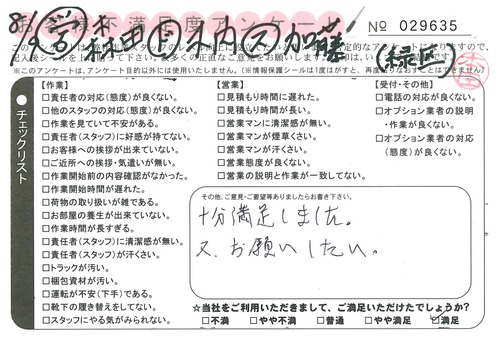 不満足度アンケート
8/ 加藤 (緑区)
No 029635
※このアンケートは、アンケート目的以外には使用いたしません。(※情報保護シールは1度はがすと、再度貼りなおすことはできません)
チェックリスト
【作業】
□責任者の対応(態度)が良くない。
□他のスタッフの対応(態度)が良くない。
□作業を見ていて不安がある。
□責任者(スタッフ)に好感が持てない。
□お客様への挨拶が出来ていない。
□ご近所への挨拶・気遣いが無い。
□作業開始前の内容確認がなかった。
□作業開始時間が遅れた。
□荷物の取り扱いが雑である。
□お部屋の養生が出来ていない。
□作業時間が長すぎる。
□責任者(スタッフ)に清潔感が無い。
□責任者(スタッフ)が汗くさい。
□トラックが汚い。
□梱包資材が汚い。
□運転が不安(下手)である。
□靴下の履き替えをしてない。
□スタッフにやる気がみられない。
【営業】
□見積もり時間に遅れた。
□見積もり時間が長い。
□営業マンに清潔感が無い。
□営業マンが煙草くさい。
□営業マンが汗くさい。
□営業態度が良くない。
□営業の説明と作業が一致してない。
【受付・その他】
□電話の対応が良くない。
□オプション業者の説明
・作業が良くない。
□オプション業者の対応
(態度)が良くない。
その他、ご意見・ご要望等ありましたらお書き下さい。
十分満足しました。
又、お願いしたい。
☆当社をご利用いただきまして、ご満足いただけたでしょうか?
□不満 □やや不満 □普通 □やや満足 ☑満足